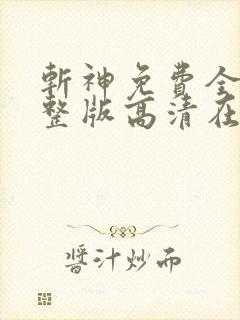 斬神免費全
整版高清在
醬汁炒而